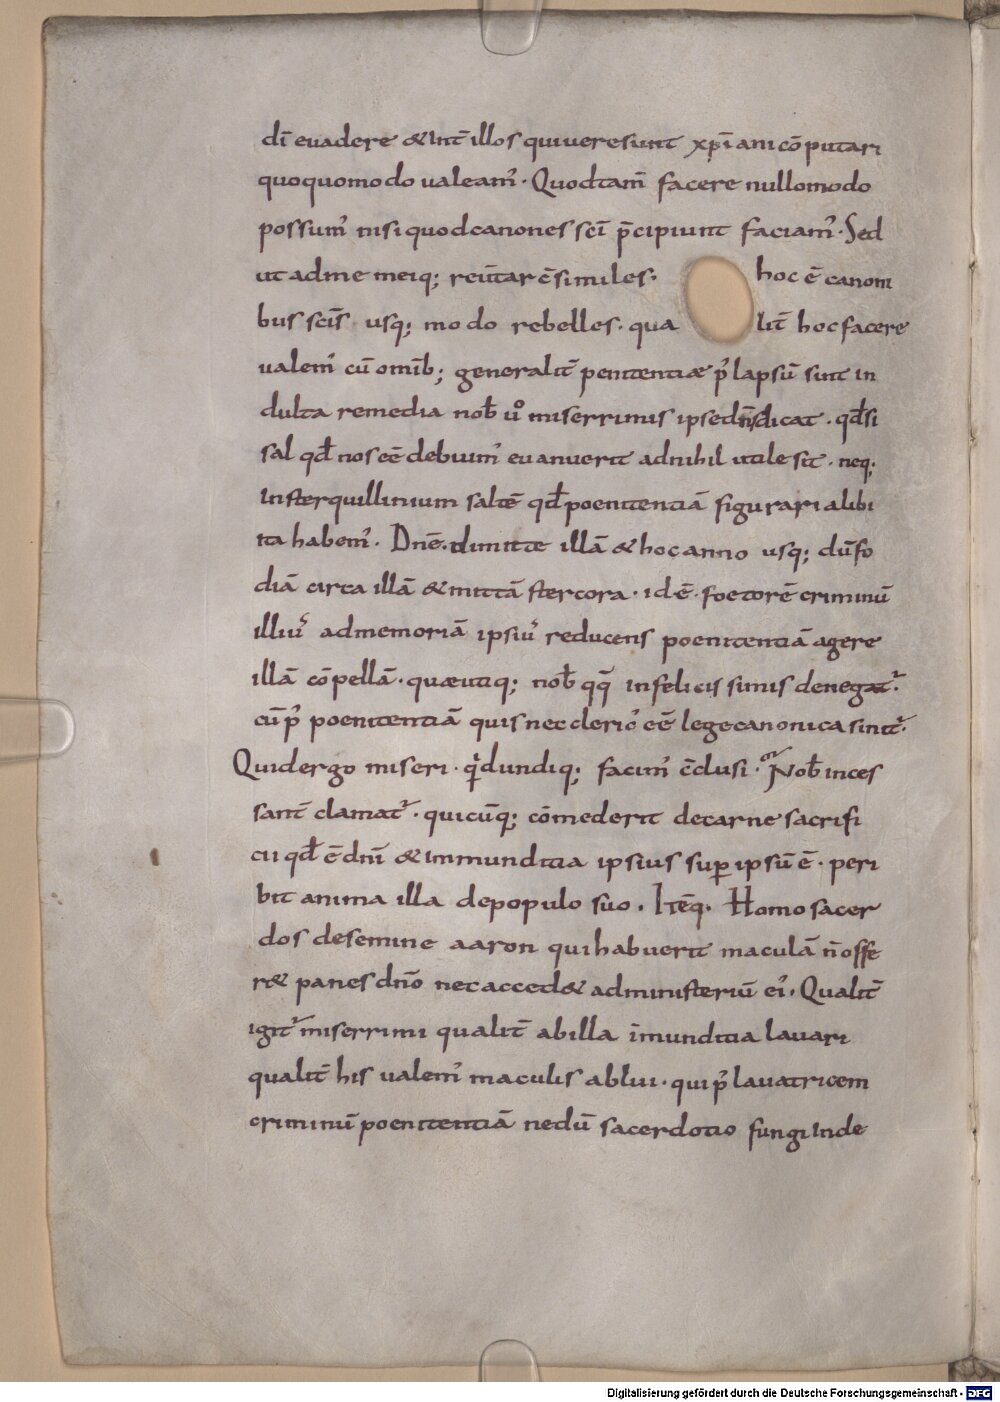 dī euadere & int̄ illos qui uere sunt xp̄iani cōputari
quoquomodo ualeam᾽. Quod tam̄ facere nullomodo
possum᾽ nisi quod canones sc̄i p̄cipiunt faciam᾽. Sed
ut ad me meiq; reūtar c̄similes. hoc ē canoni
bus sc̄is usq; modo rebelles. qua lit̄ hoc facere
ualem᾽ cū omīb; generalit̄ penitentiæ p᾽ lapsū sint in
dulta remedia nob̄ u͛o miserrimis ipse dn̄s dicat. qd̄ si
sal qd̄ nos eē debuim᾽ euanuerit ad nihil utile sit. neq;
In sterquillinium saltē qd̄ poenitentiā figurari alibi
ita habem᾽. Dn̄e. dimitte illā & hoc anno usq; dū fo
diā circa illā & mittā stercora. id ē. foetorē criminū
illiu᾽ ad memoriā ipsiu᾽ reducens poenitentiā agere
illā cōpellā. quæ utiq; nob̄ qq̄ infelicissimis denegat᾽.
cū p᾽ poenitentiā quis nec cleric᾽ eē lege canonica sinit᾽.
Quid ergo miseri. qd undiq; facim᾽ c̄clusi. Nob̄ inces
sant̄ clamat᾽. quicūq; cōmederit de carne sacrifi
cii qd̄ ē dn̄i & immunditia ipsius sup ipsū ē. peri
bit anima illa de populo suo. Itēq. Homo sacer
dos de semine aaron qui habuerit maculā n̄ offe
r& panes dn̄o nec acced& ad ministeriū ei᾽. Qualit̄
igit᾽ miserrimi qualit̄ ab illa īmunditia lauari
qualit̄ his ualem᾽ maculis ablui. qui p᾽ lauatricem
criminū poenitentiā nedū sacerdotio fungi inde
Digitalisierung gefördert durch die Deutsche Forschungsgemeinschaft - DFG